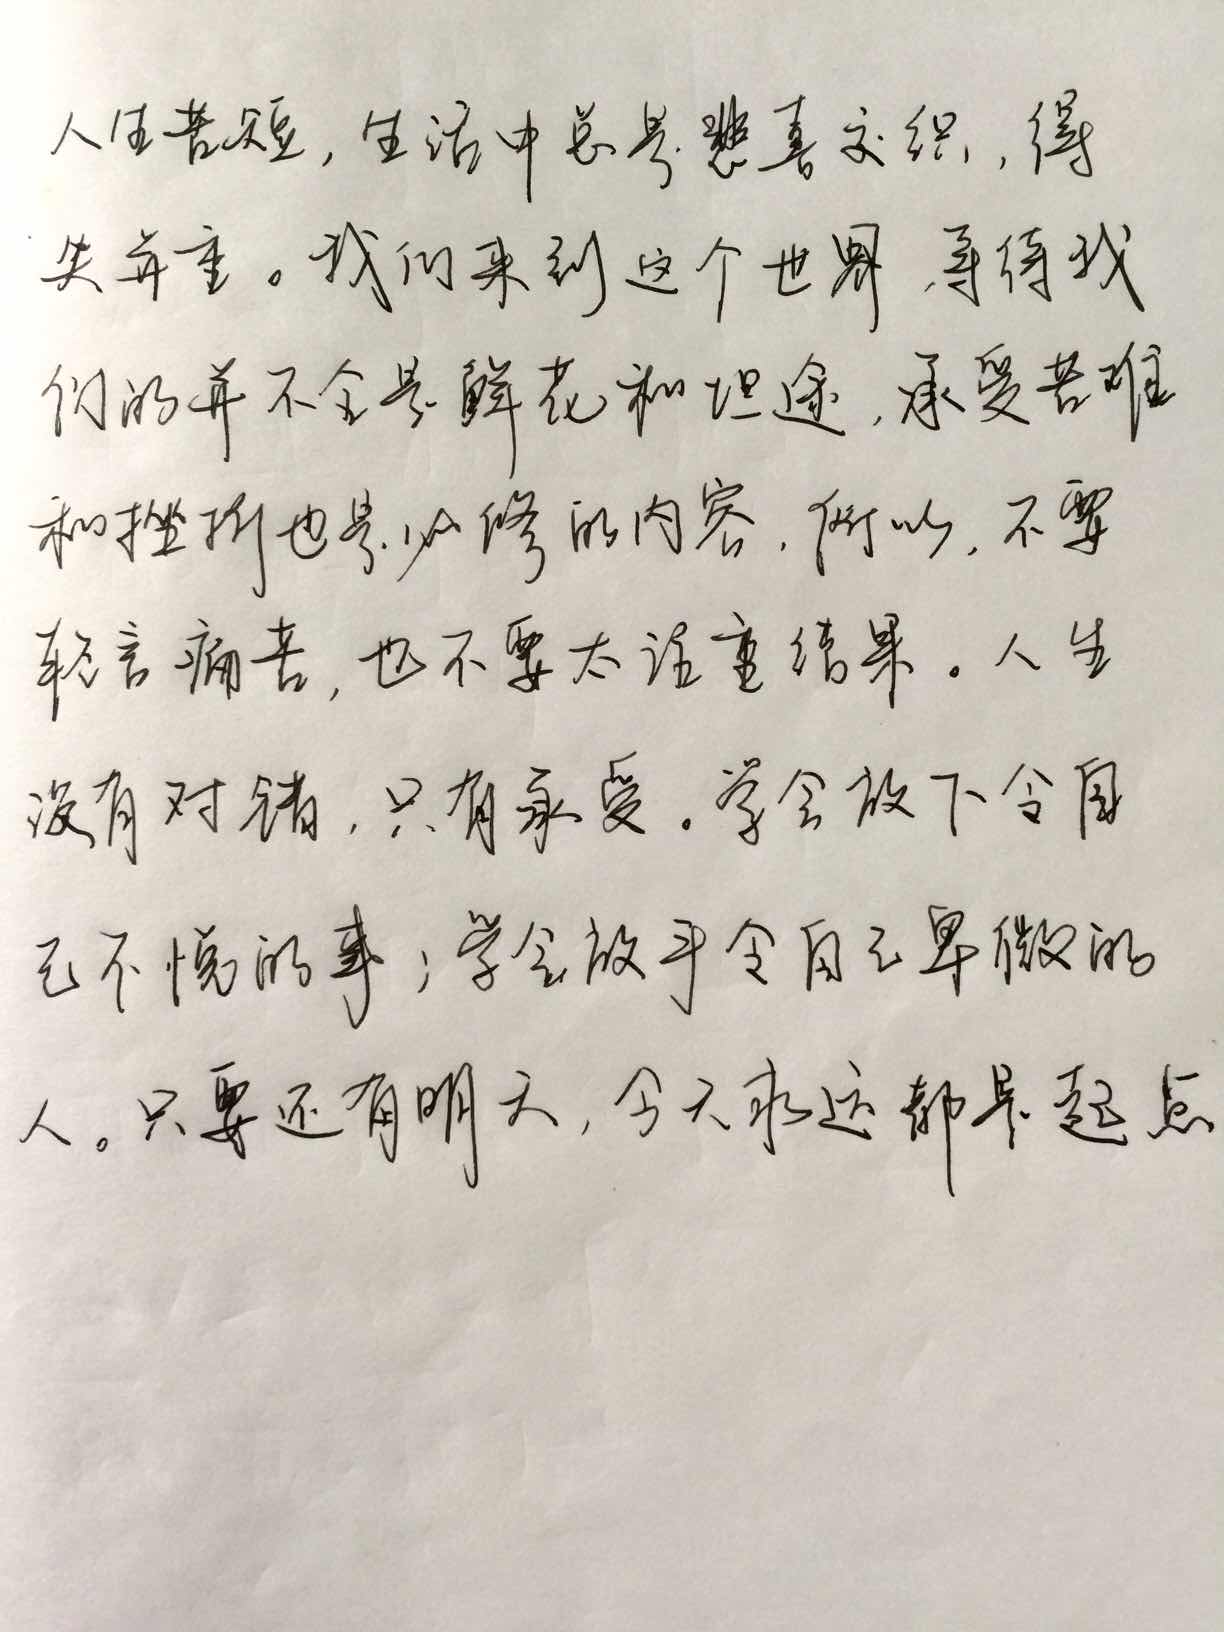 人生苦短，生活中总是悲喜交织，得
失并重。我们来到这个世界，等待我
们的并不全是鲜花和坦途，承受苦难
和挫折也是必修的内容，所以，不要
轻言痛苦，也不要太注重结果。人生
没有对错，只有承受。学会放下令自
己不悦的事；学会放手令自己卑微的
人。只要还有明天，今天永远都是起点